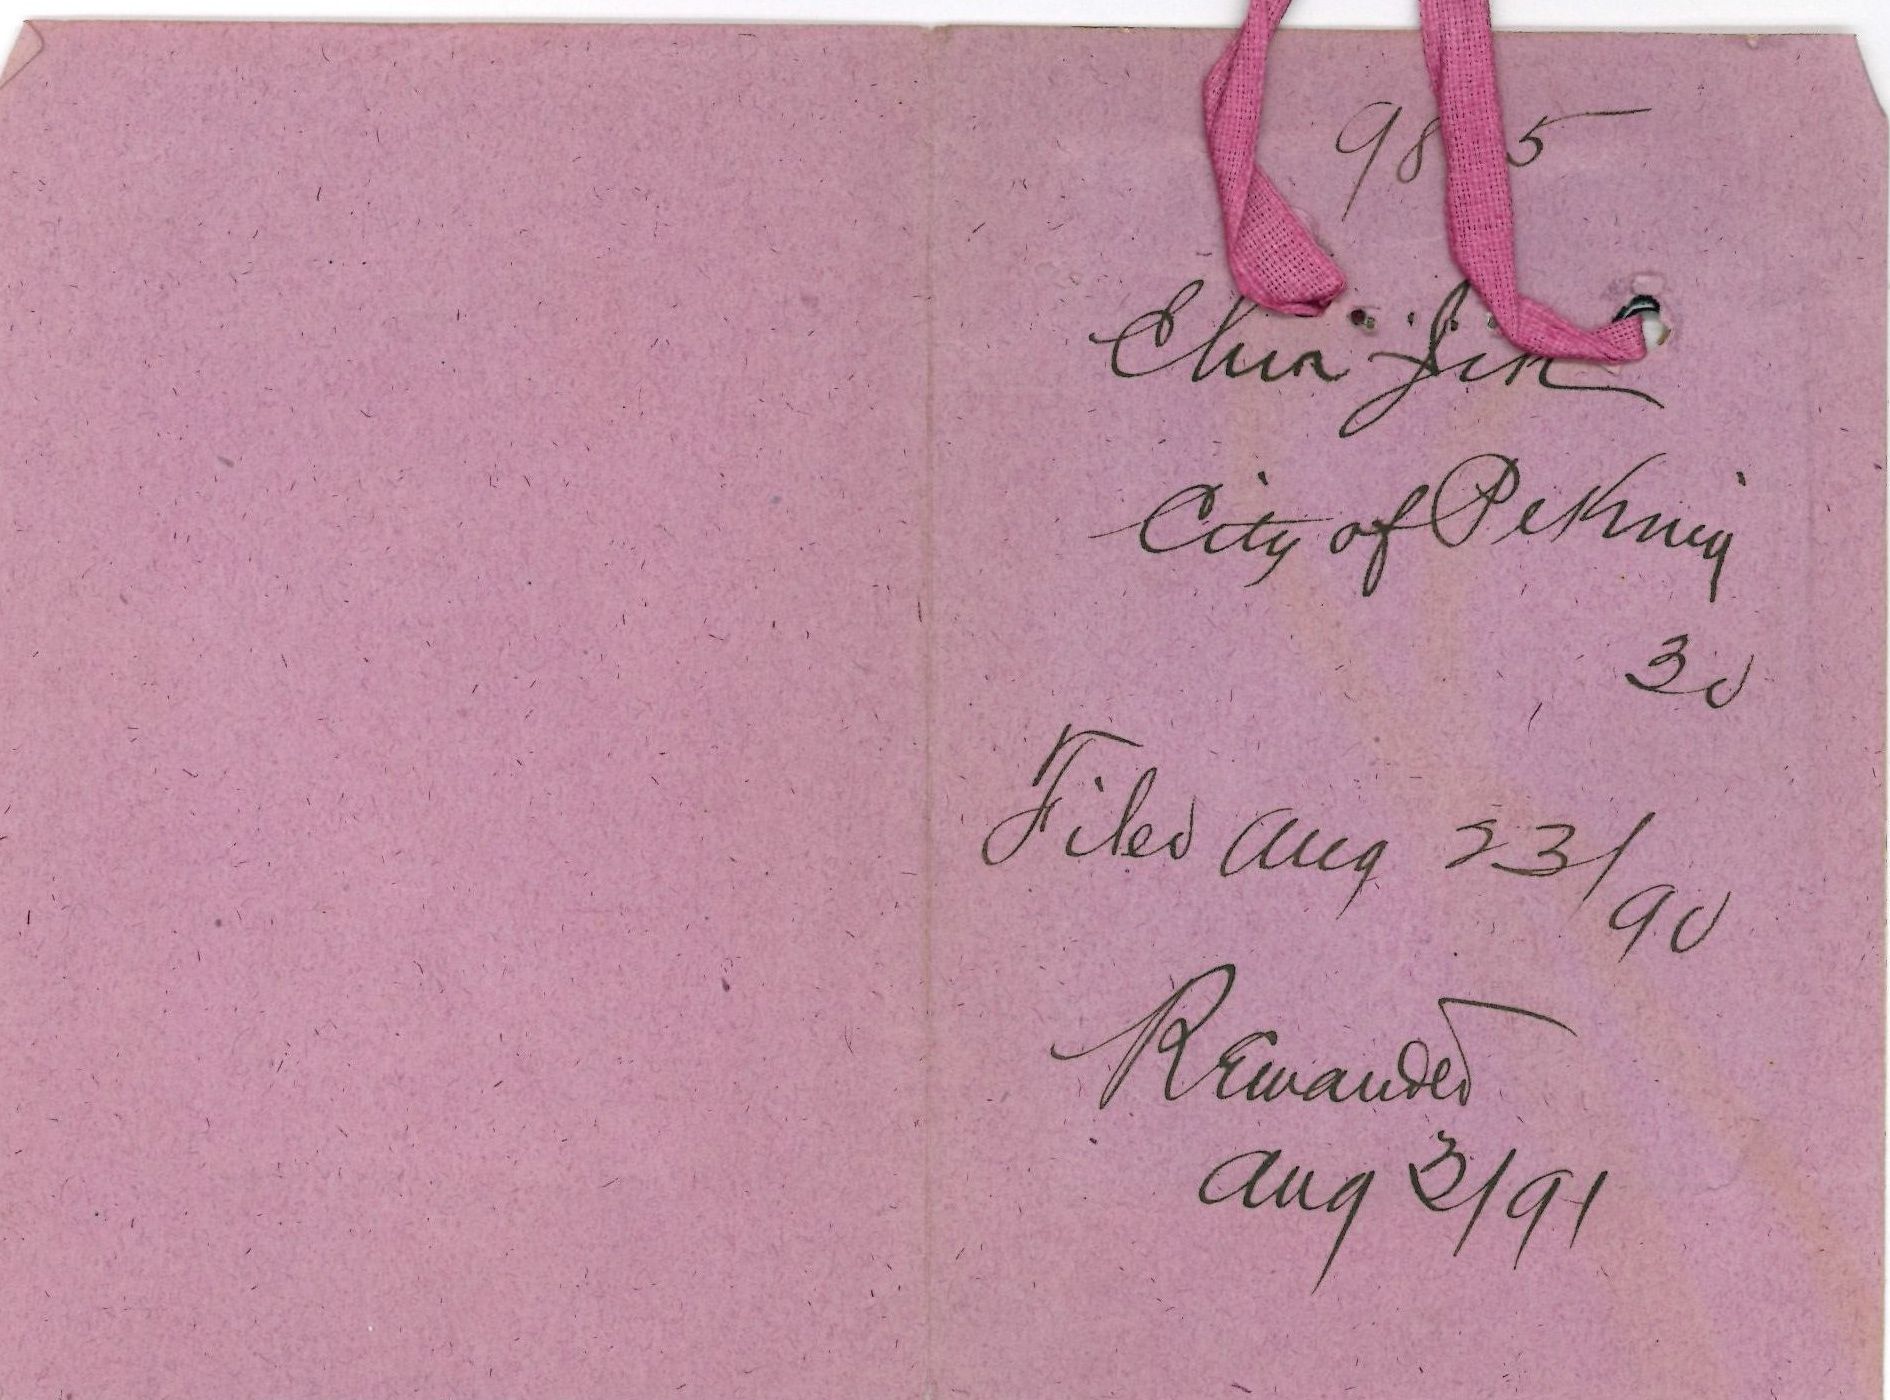 98 5
Chin Jin
City of Peking
30
Filed Aug 23/
90
Remanded
Aug 3/91